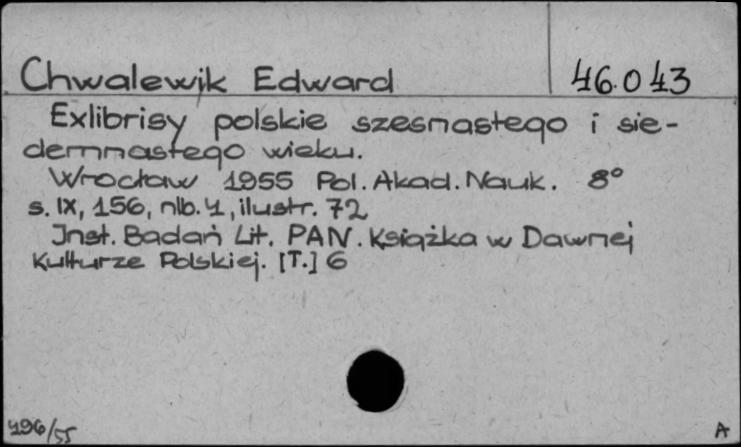 Chwalewik Edward 46.043
Exlibrisy polskie szesnastego i sie-
demnastego wieku.
Wrocław 1955 Pol. Akad. Nauk. 8°
s. IX, 156, nlb. 4, ilustr. 72
Inst. Badań Lit. PAN. Książka w Dawnej
Kulturze Polskiej. [T.] 6
496/55 A